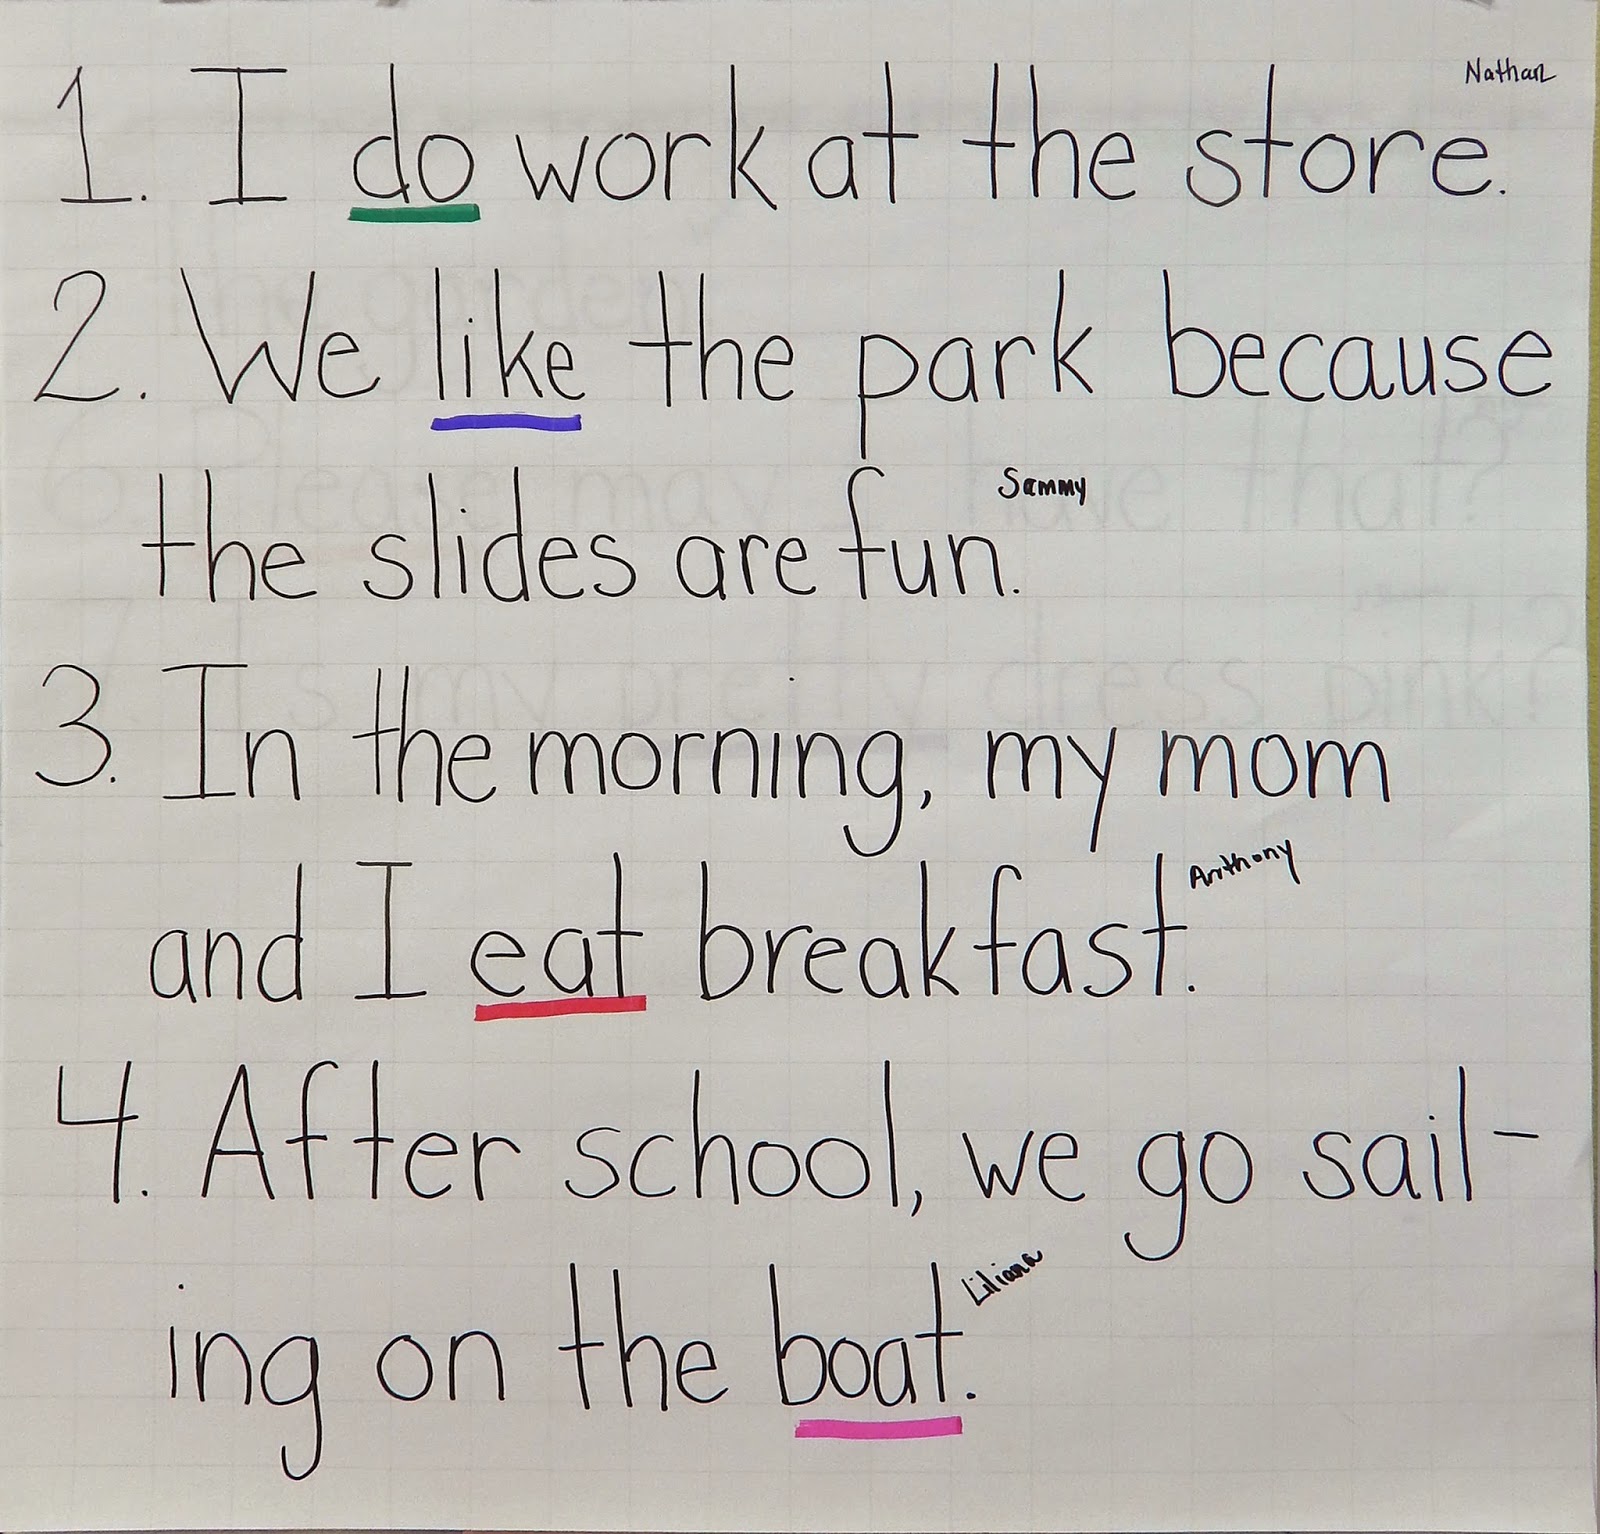 Nathan
1. I do work at the store.
2. We like the park because
Sammy
the slides are fun.
3. In the morning, my mom
Anthony
and I eat breakfast.
4. After school, we go sail-
Liliana
ing on the boat.